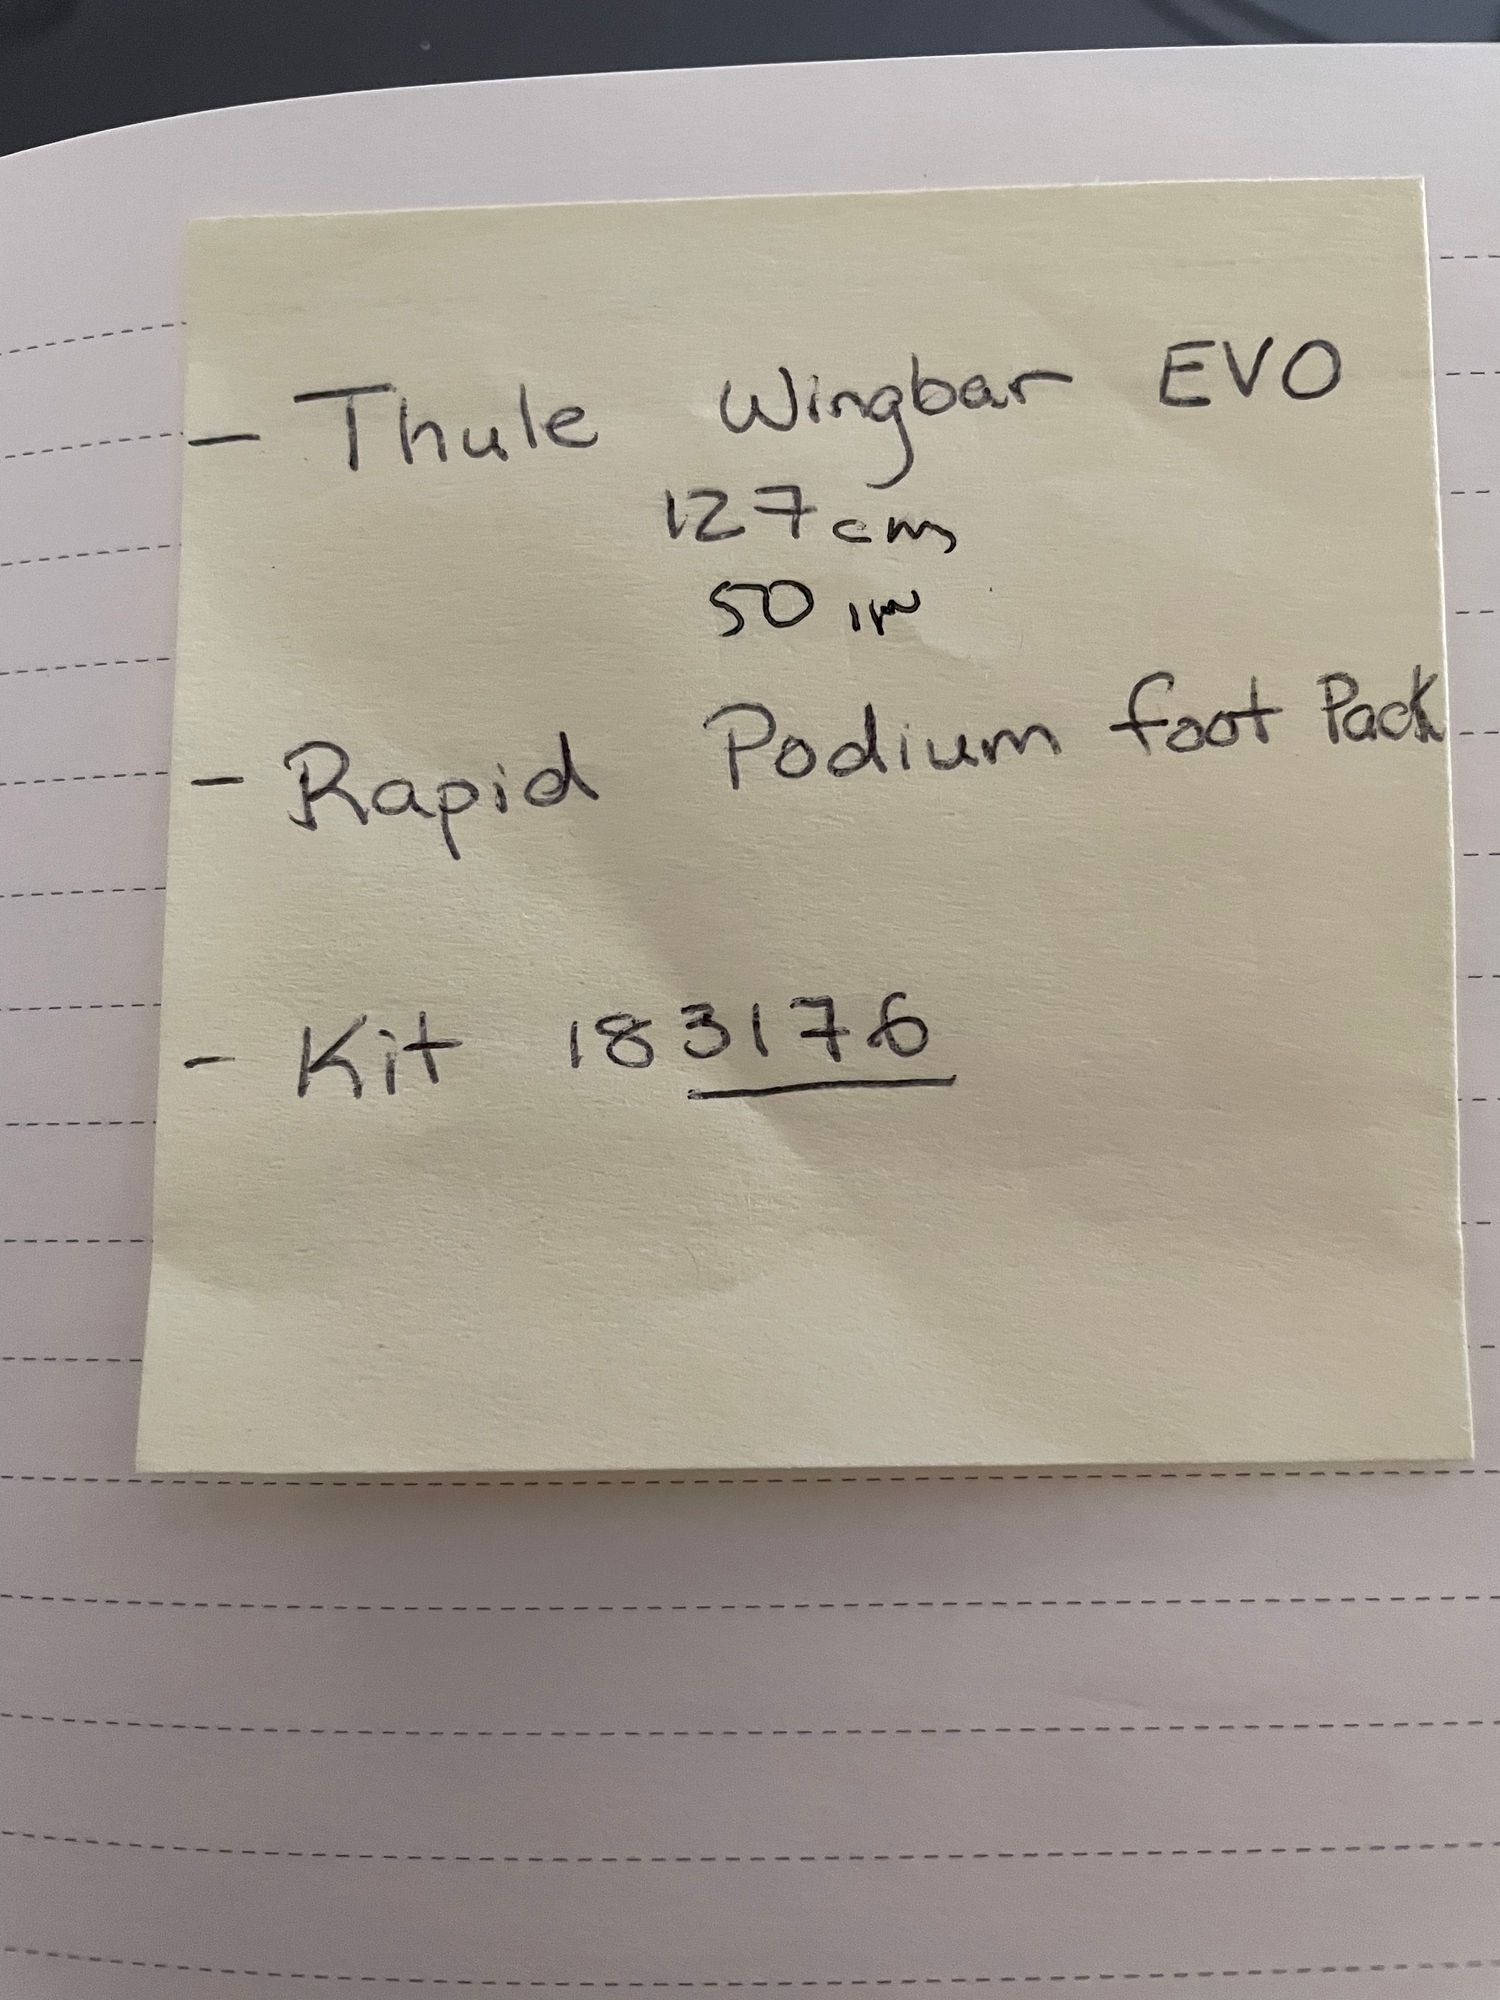 - Thule Wingbar EVO
127 cm
50 in
- Rapid Podium foot Pack
- Kit 183176